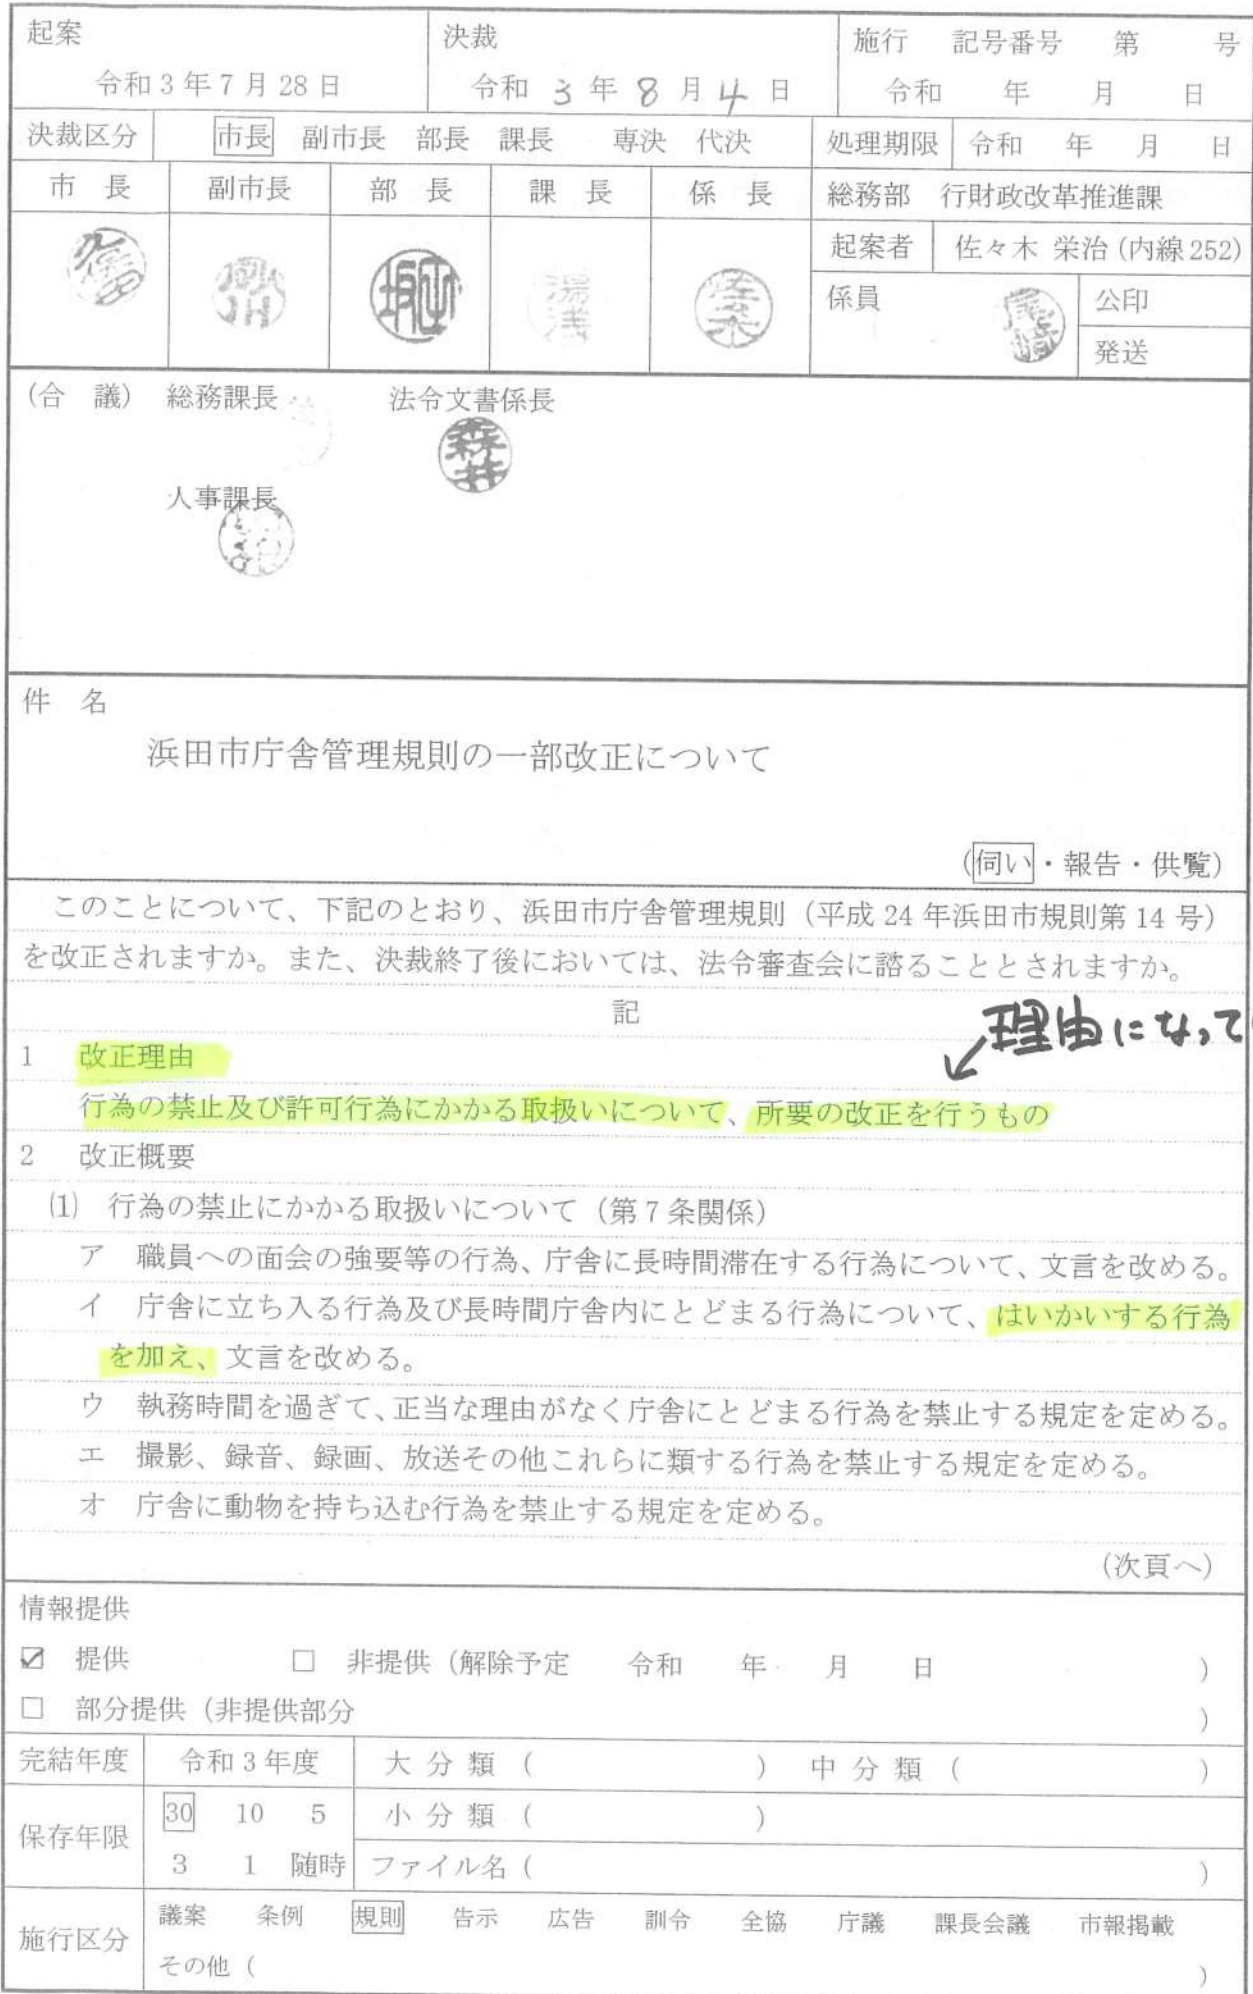 起案 決裁 施行 記号番号 第 号
令和3年7月28日 令和3年8月4日 令和 年 月 日
決裁区分 市長 副市長 部長 課長 専決 代決 処理期限 令和 年 月 日
市長 副市長 部長 課長 係長 総務部 行財政改革推進課
起案者 佐々木 栄治(内線252)
砂川 湯浅 佐々木 係員 尾崎 公印
発送
(合議) 総務課長 法令文書係長
森井
人事課長
件名
浜田市庁舎管理規則の一部改正について
(伺い・報告・供覧)
このことについて、下記のとおり、浜田市庁舎管理規則(平成24年浜田市規則第14号)
を改正されますか。また、決裁終了後においては、法令審査会に諮ることとされますか。
記
理由になって
1 改正理由
行為の禁止及び許可行為にかかる取扱いについて、所要の改正を行うもの
2 改正概要
(1) 行為の禁止にかかる取扱いについて(第7条関係)
ア 職員への面会の強要等の行為、庁舎に長時間滞在する行為について、文言を改める。
イ 庁舎に立ち入る行為及び長時間庁舎内にとどまる行為について、はいかいする行為
を加え、文言を改める。
ウ 執務時間を過ぎて、正当な理由がなく庁舎にとどまる行為を禁止する規定を定める。
エ 撮影、録音、録画、放送その他これらに類する行為を禁止する規定を定める。
オ 庁舎に動物を持ち込む行為を禁止する規定を定める。
(次頁へ)
情報提供
☑ 提供 □ 非提供(解除予定 令和 年 月 日 )
□ 部分提供(非提供部分 )
完結年度 令和3年度 大分類( ) 中分類( )
保存年限 30 10 5 小分類( )
3 1 随時 ファイル名( )
施行区分 議案 条例 規則 告示 広告 訓令 全協 庁議 課長会議 市報掲載
その他( )